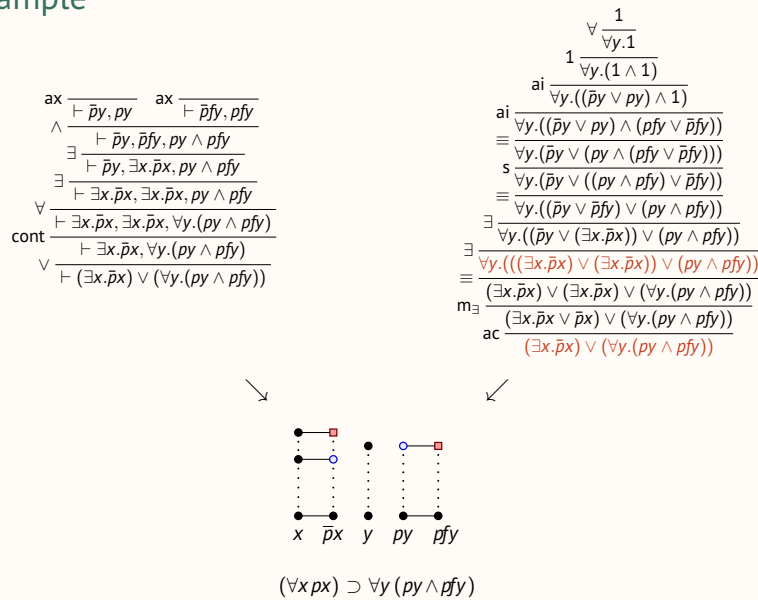 ample
ax ⊢ p̄y, py ax ⊢ p̄fy, pfy
∧ ⊢ p̄y, p̄fy, py ∧ pfy
∃ ⊢ p̄y, ∃x.p̄x, py ∧ pfy
∃ ⊢ ∃x.p̄x, ∃x.p̄x, py ∧ pfy
∀ ⊢ ∃x.p̄x, ∃x.p̄x, ∀y.(py ∧ pfy)
cont ⊢ ∃x.p̄x, ∀y.(py ∧ pfy)
∨ ⊢ (∃x.p̄x) ∨ (∀y.(py ∧ pfy))
1
∀ ∀y.1
1 ∀y.(1 ∧ 1)
ai ∀y.((p̄y ∨ py) ∧ 1)
ai ∀y.((p̄y ∨ py) ∧ (pfy ∨ p̄fy))
≡ ∀y.(p̄y ∨ (py ∧ (pfy ∨ p̄fy)))
s ∀y.(p̄y ∨ ((py ∧ pfy) ∨ p̄fy))
≡ ∀y.((p̄y ∨ p̄fy) ∨ (py ∧ pfy))
∃ ∀y.((p̄y ∨ (∃x.p̄x)) ∨ (py ∧ pfy))
∃ ∀y.(((∃x.p̄x) ∨ (∃x.p̄x)) ∨ (py ∧ pfy))
≡ (∃x.p̄x) ∨ (∃x.p̄x) ∨ (∀y.(py ∧ pfy))
m∃ (∃x.p̄x ∨ p̄x) ∨ (∀y.(py ∧ pfy))
ac (∃x.p̄x) ∨ (∀y.(py ∧ pfy))
x p̄x y py pfy
(∀x px) ⊃ ∀y (py ∧ pfy)